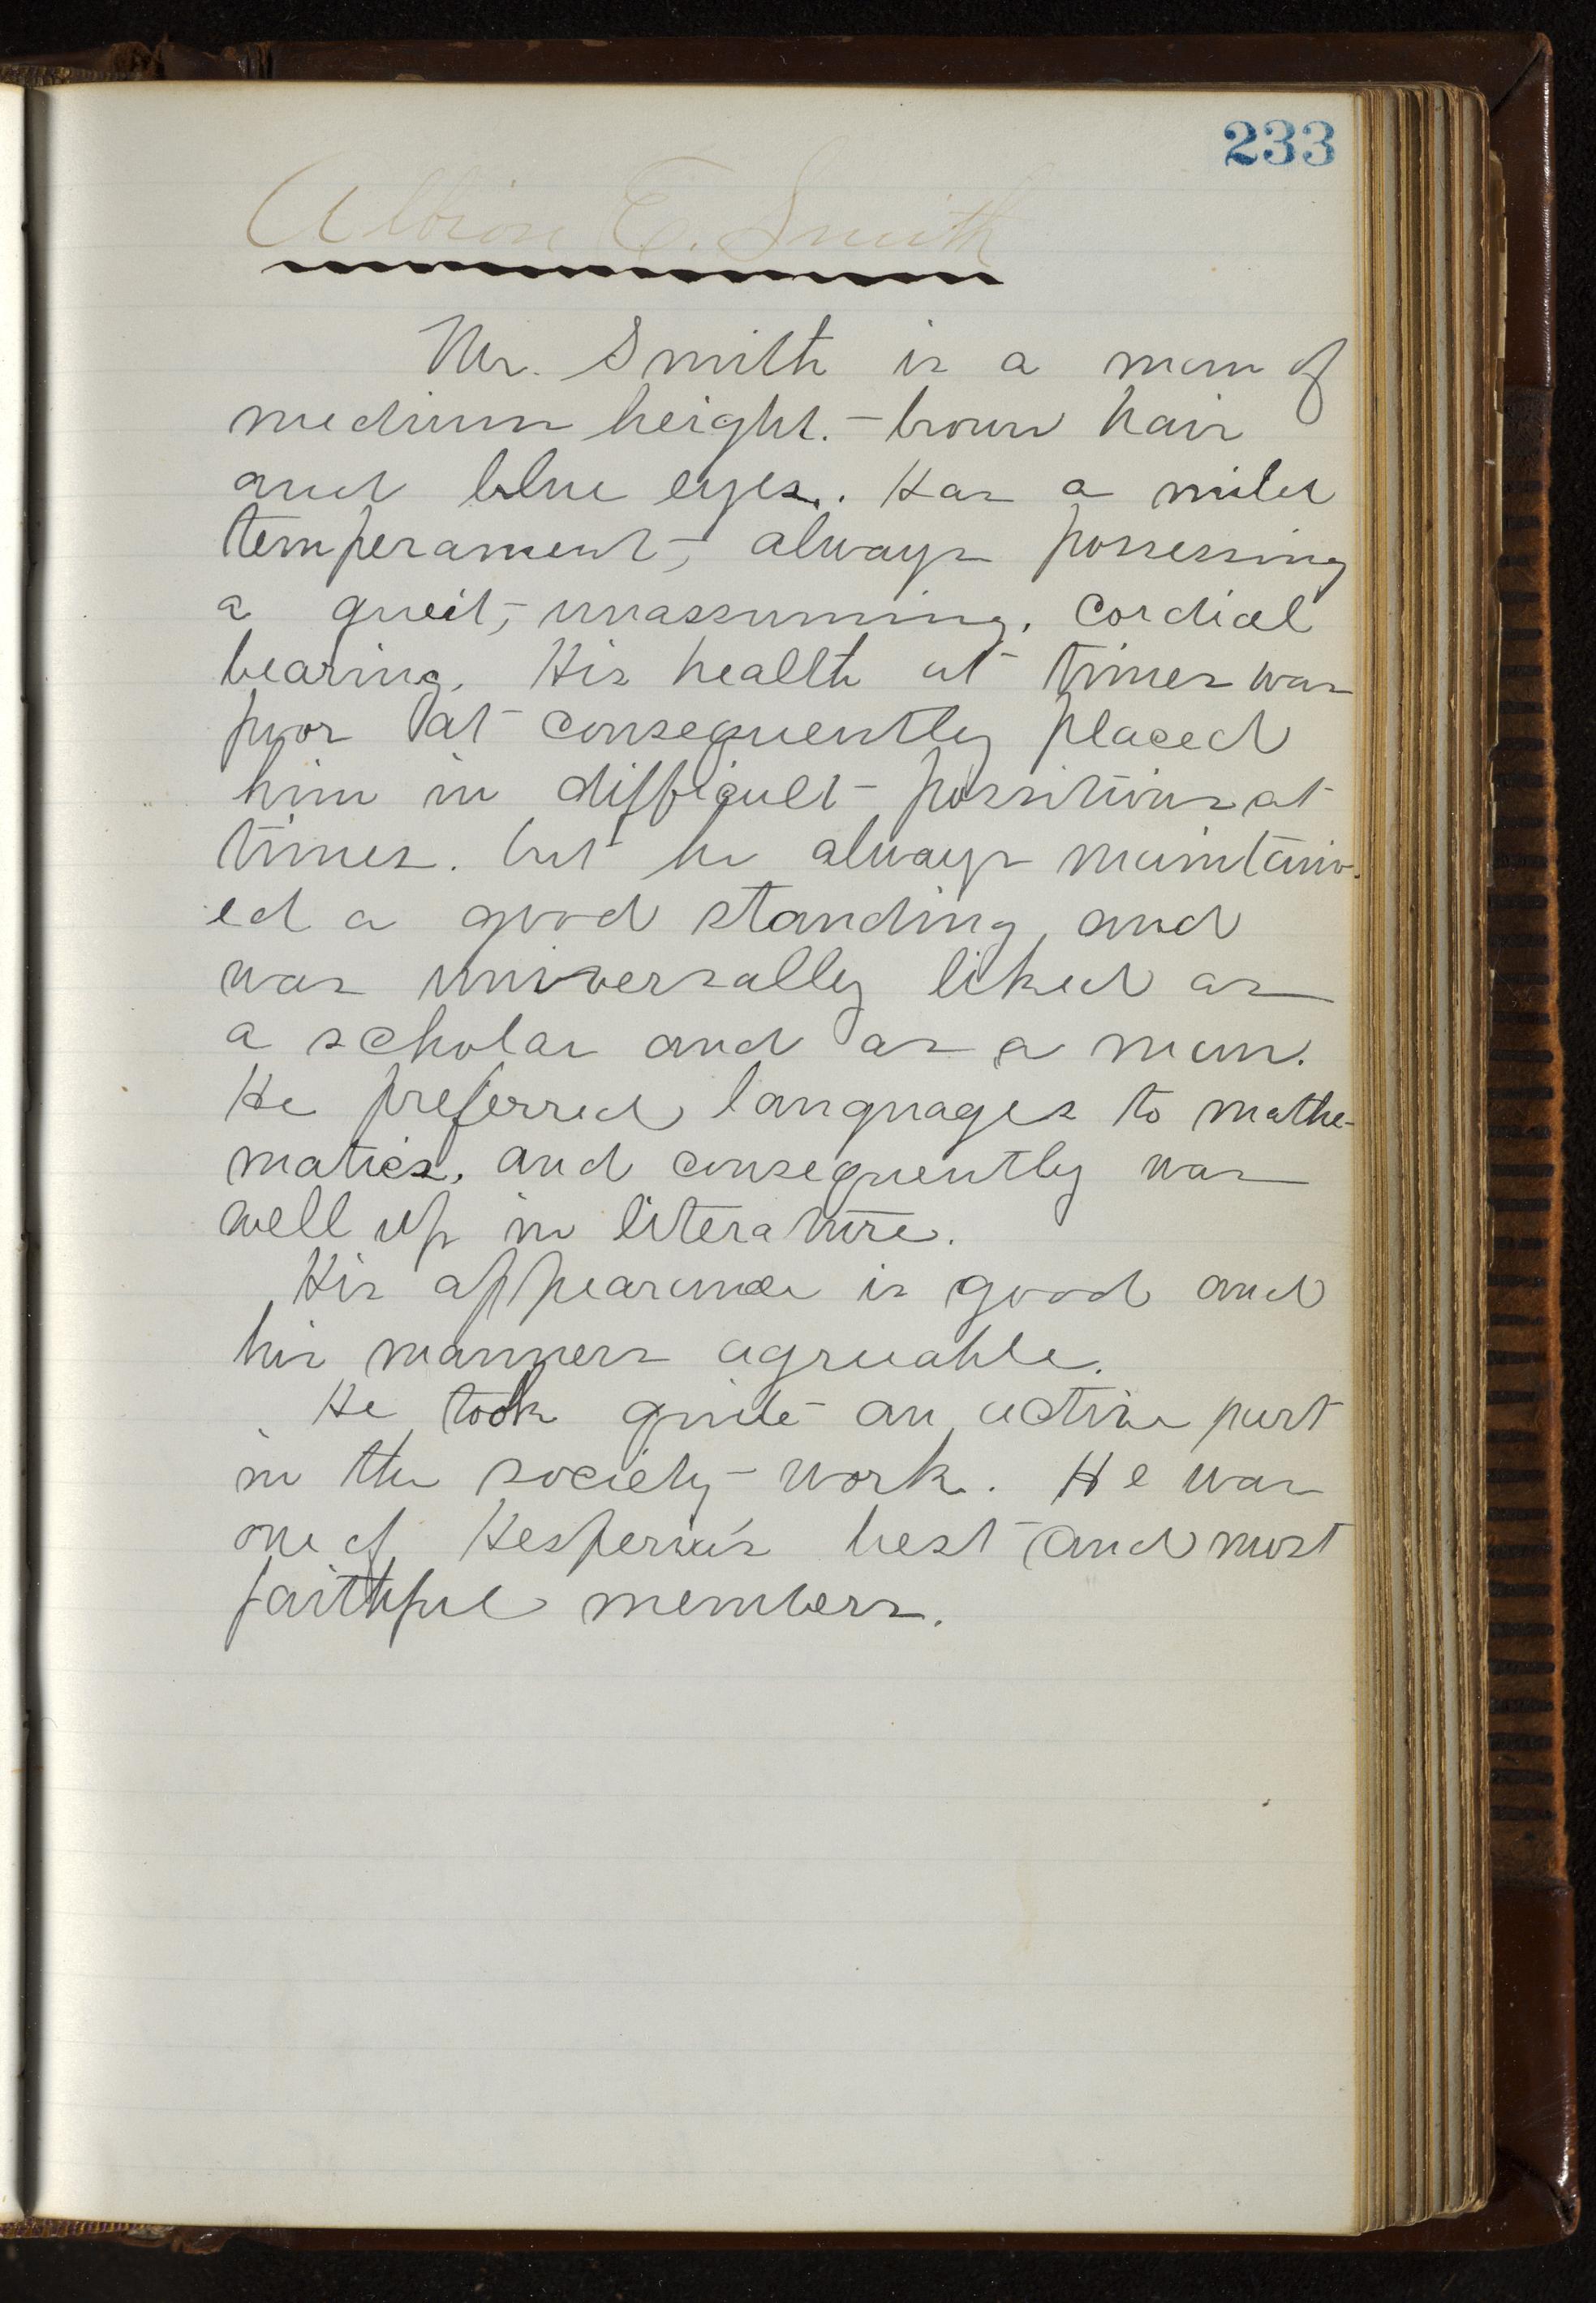 233
Albion E. Smith
Mr. Smith is a man of
medium height. - brown hair
and blue eyes. Has a mild
temperament, always possessing
a queit, unassuming, cordial
bearing. His health at times was
poor at consequently placed
him in difficult possitions at
times. but he always maintain-
ed a good standing, and
was universally liked as
a scholar and as a man.
He preferred languages to mathe-
matics, and consequently was
well up in literature.
His appearance is good and
his manners agreeable.
He took quite an active part
in the society work. He was
one of Hesperia's best and most
faithful members.